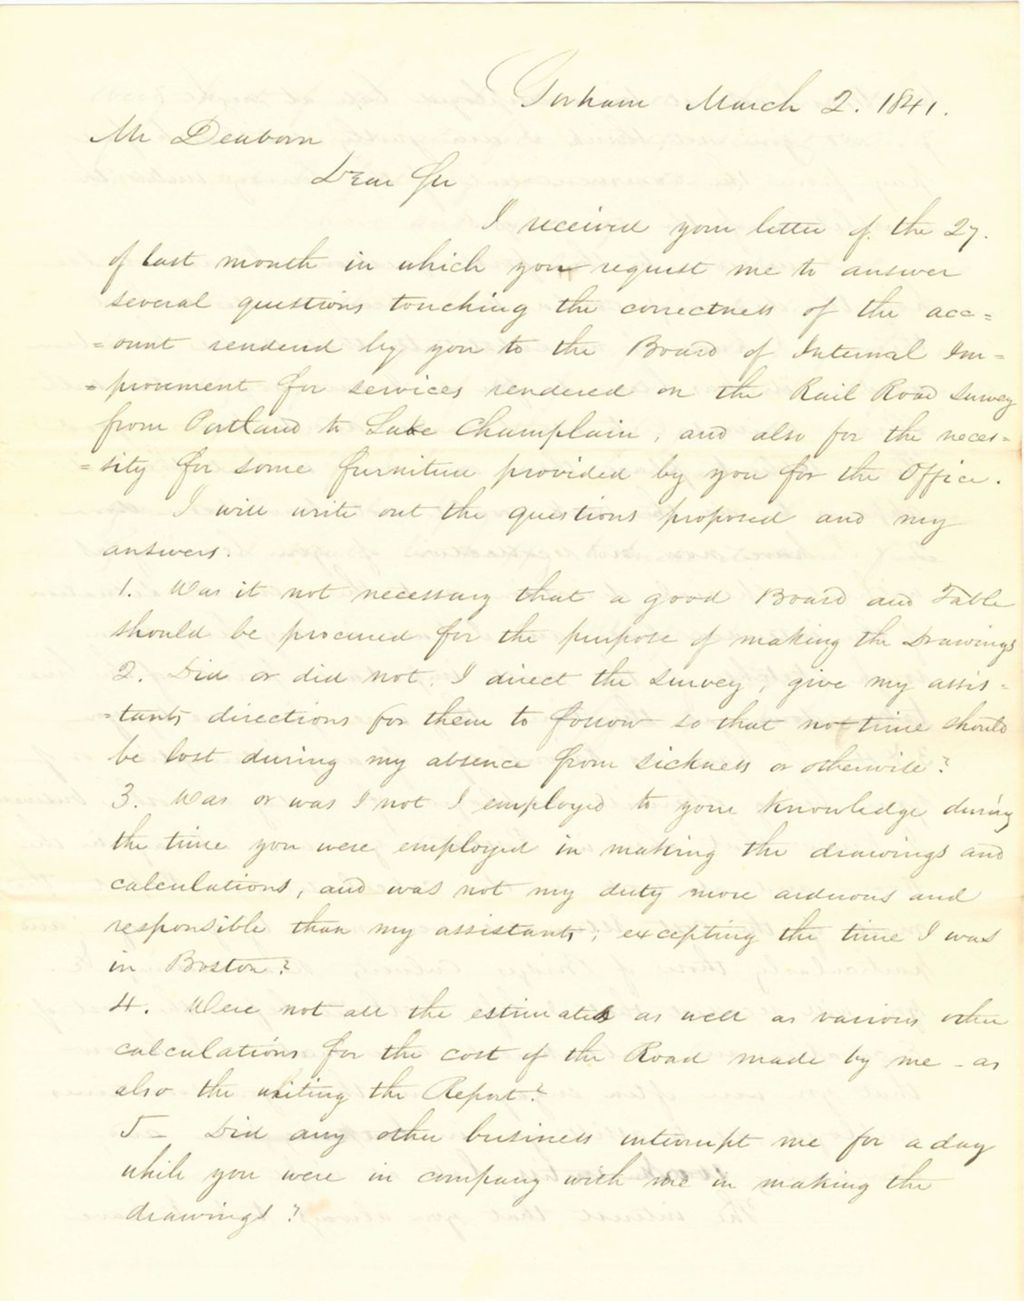 Gorham March 2. 1841.
Mr Dearborn
Dear Sir
I received your letter of the 27.
of last month in which you request me to answer
several questions touching the correctness of the acc=
=ount rendered by you to the Board of Internal Im=
=provement for services rendered on the Rail Road survey
from Portland to Lake Champlain, and also for the neces=
=sity for some furniture provided by you for the Office.
I will write out the questions proposed and my
answers.
1. Was it not necessary that a good Board and Table
should be procured for the purpose of making the Drawings
2. Did or did not I direct the survey, give my assis=
=tants directions for them to follow so that no time should
be lost during my absence from sickness or otherwise?
3. Was or was I not I employed to your knowledge during
the time you were employed in making the drawings and
calculations, and was not my duty more arduous and
responsible than my assistants; excepting the time I was
in Boston?
4. Were not all the estimates as well as various other
calculations for the cost of the Road made by me - as
also the writing the Report?
5 - Did any other business interrupt me for a day
while you were in company with me in making the
drawings?